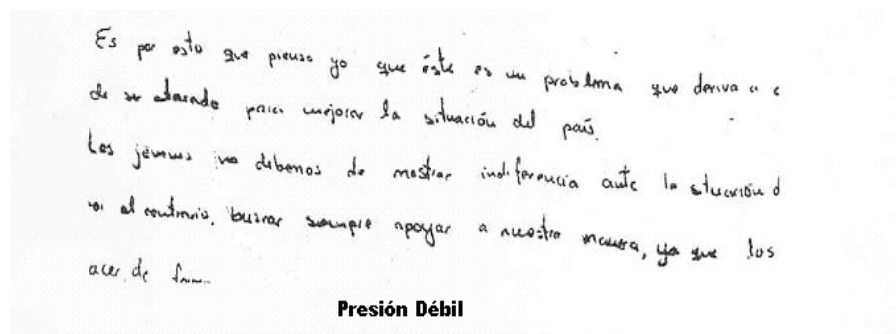 Es por esto que pienso yo que éste es un problema que deriva a c
de ser abarado para mejorar la situación del país.
Los jóvenes no debemos de mostrar indiferencia ante la situación d
al contrario, buscar siempre apoyar a nuestra manera, ya que los
acer de
Presión Débil